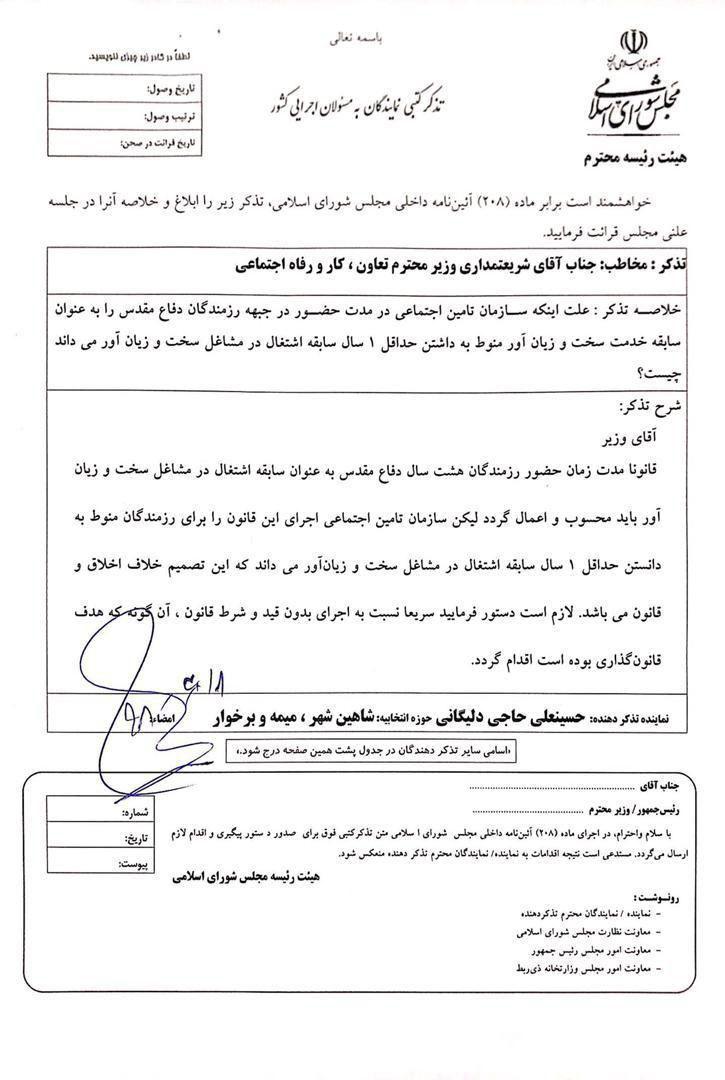 باسمه تعالی
جمهوری اسلامی ایران
مجلس شورای اسلامی
تذکر کتبی نمایندگان به مسئولان اجرایی کشور
لطفاً در کادر زیر چیزی ننویسید.
تاریخ وصول:
ترتیب وصول:
تاریخ قرائت در صحن:
هیئت رئیسه محترم
خواهشمند است برابر ماده (۲۰۸) آئین‌نامه داخلی مجلس شورای اسلامی، تذکر زیر را ابلاغ و خلاصه آنرا در جلسه
علنی مجلس قرائت فرمایید.
تذکر : مخاطب: جناب آقای شریعتمداری وزیر محترم تعاون ، کار و رفاه اجتماعی
خلاصه تذکر : علت اینکه سازمان تامین اجتماعی در مدت حضور در جبهه رزمندگان دفاع مقدس را به عنوان
سابقه خدمت سخت و زیان آور منوط به داشتن حداقل ۱ سال سابقه اشتغال در مشاغل سخت و زیان آور می داند
چیست؟
شرح تذکر:
آقای وزیر
قانونا مدت زمان حضور رزمندگان هشت سال دفاع مقدس به عنوان سابقه اشتغال در مشاغل سخت و زیان
آور باید محسوب و اعمال گردد لیکن سازمان تامین اجتماعی اجرای این قانون را برای رزمندگان منوط به
دانستن حداقل ۱ سال سابقه اشتغال در مشاغل سخت و زیان‌آور می داند که این تصمیم خلاف اخلاق و
قانون می باشد. لازم است دستور فرمایید سریعا نسبت به اجرای بدون قید و شرط قانون ، آن گونه که هدف
قانون‌گذاری بوده است اقدام گردد.
نماینده تذکر دهنده: حسینعلی حاجی دلیگانی حوزه انتخابیه: شاهین شهر ، میمه و برخوار امضاء:
«اسامی سایر تذکر دهندگان در جدول پشت همین صفحه درج شود.»
جناب آقای ................................................
رئیس‌جمهور/ وزیر محترم ................................
شماره:
تاریخ:
پیوست:
با سلام واحترام، در اجرای ماده (۲۰۸) آئین‌نامه داخلی مجلس شورای ا سلامی متن تذکرکتبی فوق برای صدور د ستور پیگیری و اقدام لازم
ارسال می‌گردد. مستدعی است نتیجه اقدامات به نماینده/ نمایندگان محترم تذکر دهنده منعکس شود.
هیئت رئیسه مجلس شورای اسلامی
رونوشت:
- نماینده / نمایندگان محترم تذکردهنده
- معاونت نظارت مجلس شورای اسلامی
- معاونت امور مجلس رئیس جمهور
- معاونت امور مجلس وزارتخانه ذی‌ربط